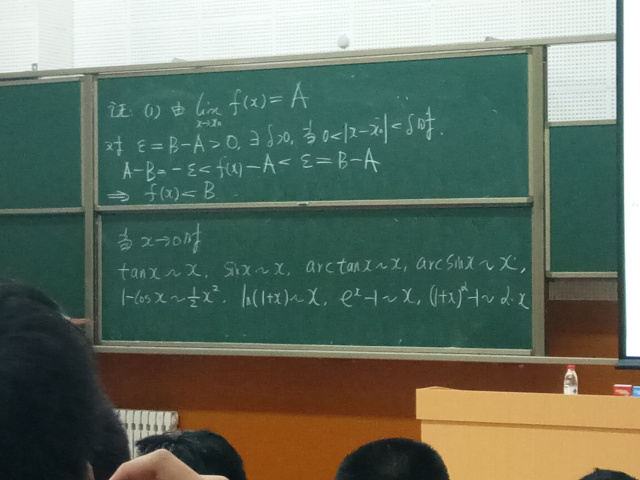 证: (1) 由 lim x→x₀ f(x) = A
对 ε = B-A > 0, ∃ δ>0, 当 0<|x-x₀|<δ 时,
A-B = -ε < f(x)-A < ε = B-A
⇒ f(x) < B
当 x→0 时
tanx ~ x, sinx ~ x, arctanx ~ x, arcsinx ~ x,
1-cosx ~ ½x², ln(1+x) ~ x, eˣ-1 ~ x, (1+x)^α-1 ~ α·x